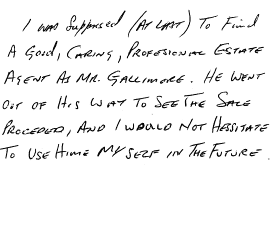 I was Supprised (At Last) To Find
A Good, Caring, Profesional Estate
Agent As Mr. Gallimore. He Went
Out of His Way To See The Sale
Proceded, And I Would Not Hessitate
To Use Hime My Self in The Future.